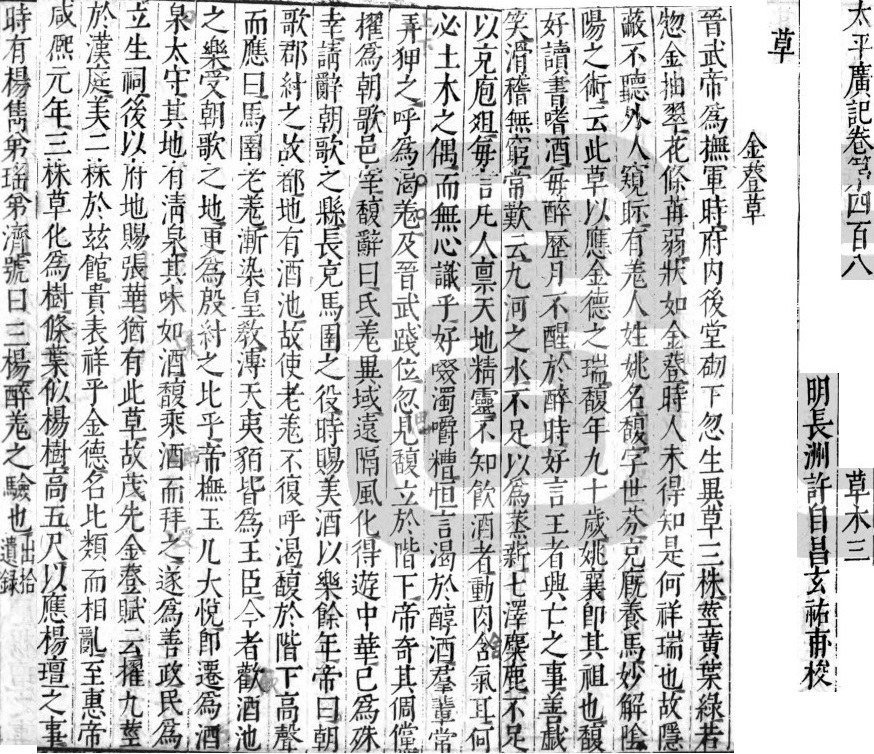 太平廣記卷第四百八
草木三
明長洲許自昌玄祐甫校
草
金䔲草
晉武帝為撫軍時府內後堂砌下忽生異草三株莖黃葉綠若
惣金抽翠花條苒弱狀如金䔲時人未得知是何祥瑞也故隱
蔽不聽外人窺眎有羌人姓姚名馥字世芬充厩養馬妙解陰
陽之術云此草以應金德之瑞馥年九十歲姚襄即其祖也馥
好讀書嗜酒每醉歷月不醒於醉時好言王者興亡之事善戲
笑滑稽無窮常歎云九河之水不足以為蒸薪七澤麋鹿不足
以充庖俎每言凡人禀天地精靈不知飲酒者動肉含氣耳何
必土木之偶而無心識乎好啜濁嚼糟恒言渴於醇酒羣輩常
弄狎之呼為渴羌及晉武踐位忽見馥立於階下帝奇其倜儻
擢為朝歌邑宰馥辭曰氐羌異域遠隔風化得遊中華已為殊
幸請辭朝歌之縣長充馬圉之役時賜美酒以樂餘年帝曰朝
歌郡紂之故都地有酒池故使老羌不復呼渴馥於階下高聲
而應曰馬圉老羌漸染皇教溥天夷貊皆為王臣今者歡酒池
之樂受朝歌之地更為殷紂之比乎帝撫玉几大悅即遷為酒
泉太守其地有清泉其味如酒馥乘酒而拜之遂為善政民為
立生祠後以府地賜張華猶有此草故茂先金䔲賦云擢九莖
於漢庭美二株於兹館貴表祥乎金德名比類而相亂至惠帝
咸熙元年三株草化為樹條葉似楊樹高五尺以應楊壇之事
時有楊雋弟瑶弟濟號曰三楊醉羌之驗也出拾遺録